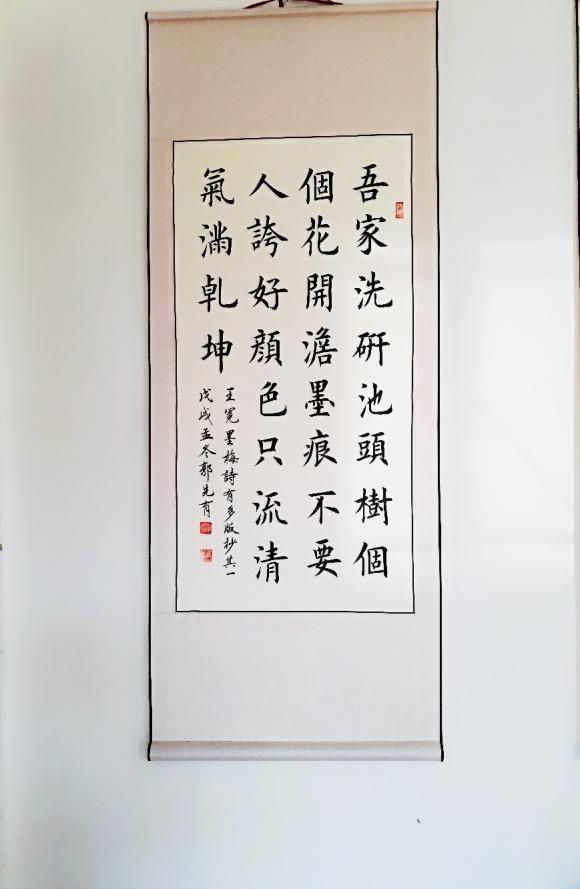 吾家洗研池頭樹個
個花開澹墨痕不要
人誇好顔色只流清
氣滿乾坤
王冕墨梅詩有多版抄其一
戊戌孟冬郭先有